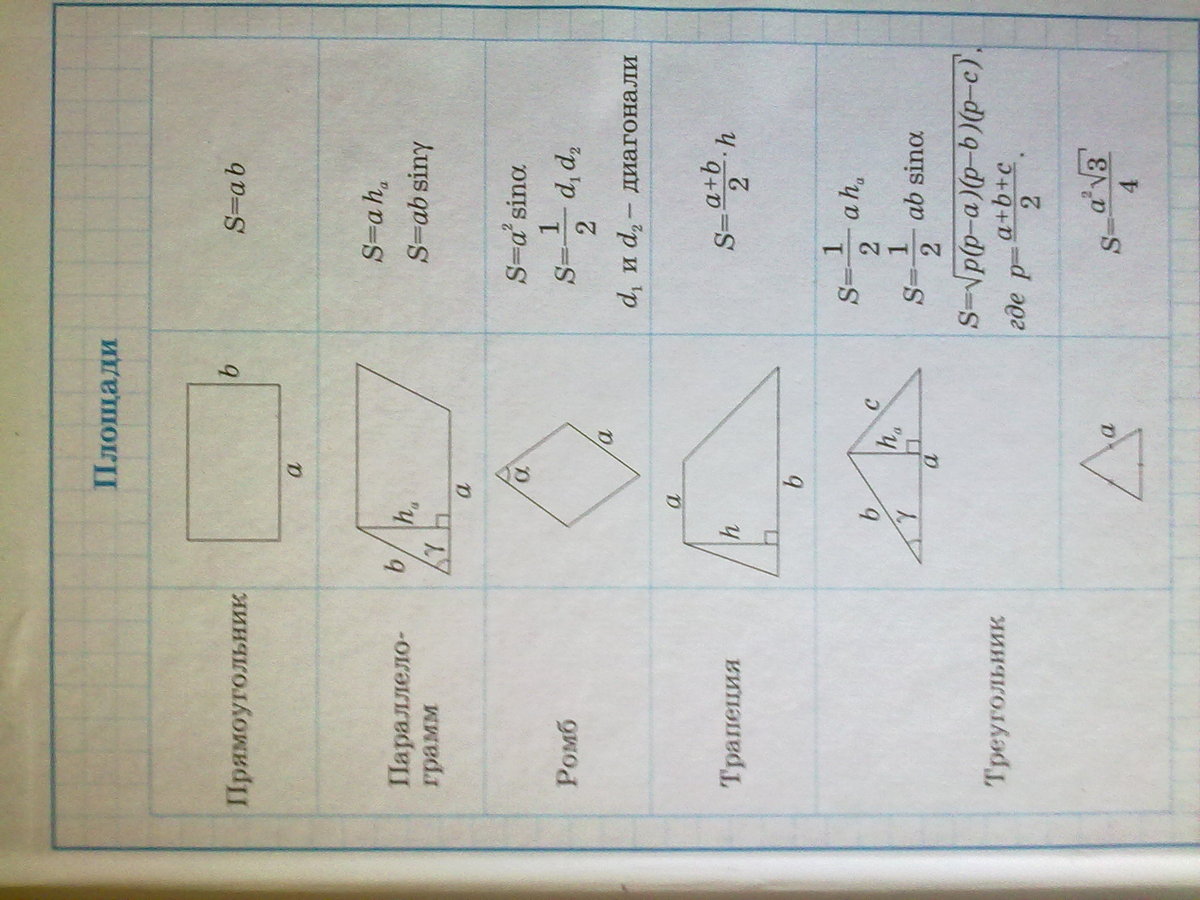 Площади
Прямоугольник
a
b
S=ab
Параллело-
грамм
b
γ
hₐ
a
S=a hₐ
S=ab sinγ
Ромб
α
a
S=a² sinα
S=1/2 d₁ d₂
d₁ и d₂ – диагонали
Трапеция
a
h
b
S=a+b/2·h
Треугольник
b
c
γ
hₐ
a
S=1/2 a hₐ
S=1/2 ab sinα
S=√p(p–a)(p–b)(p–c),
где p=a+b+c/2.
a
S=a²√3/4